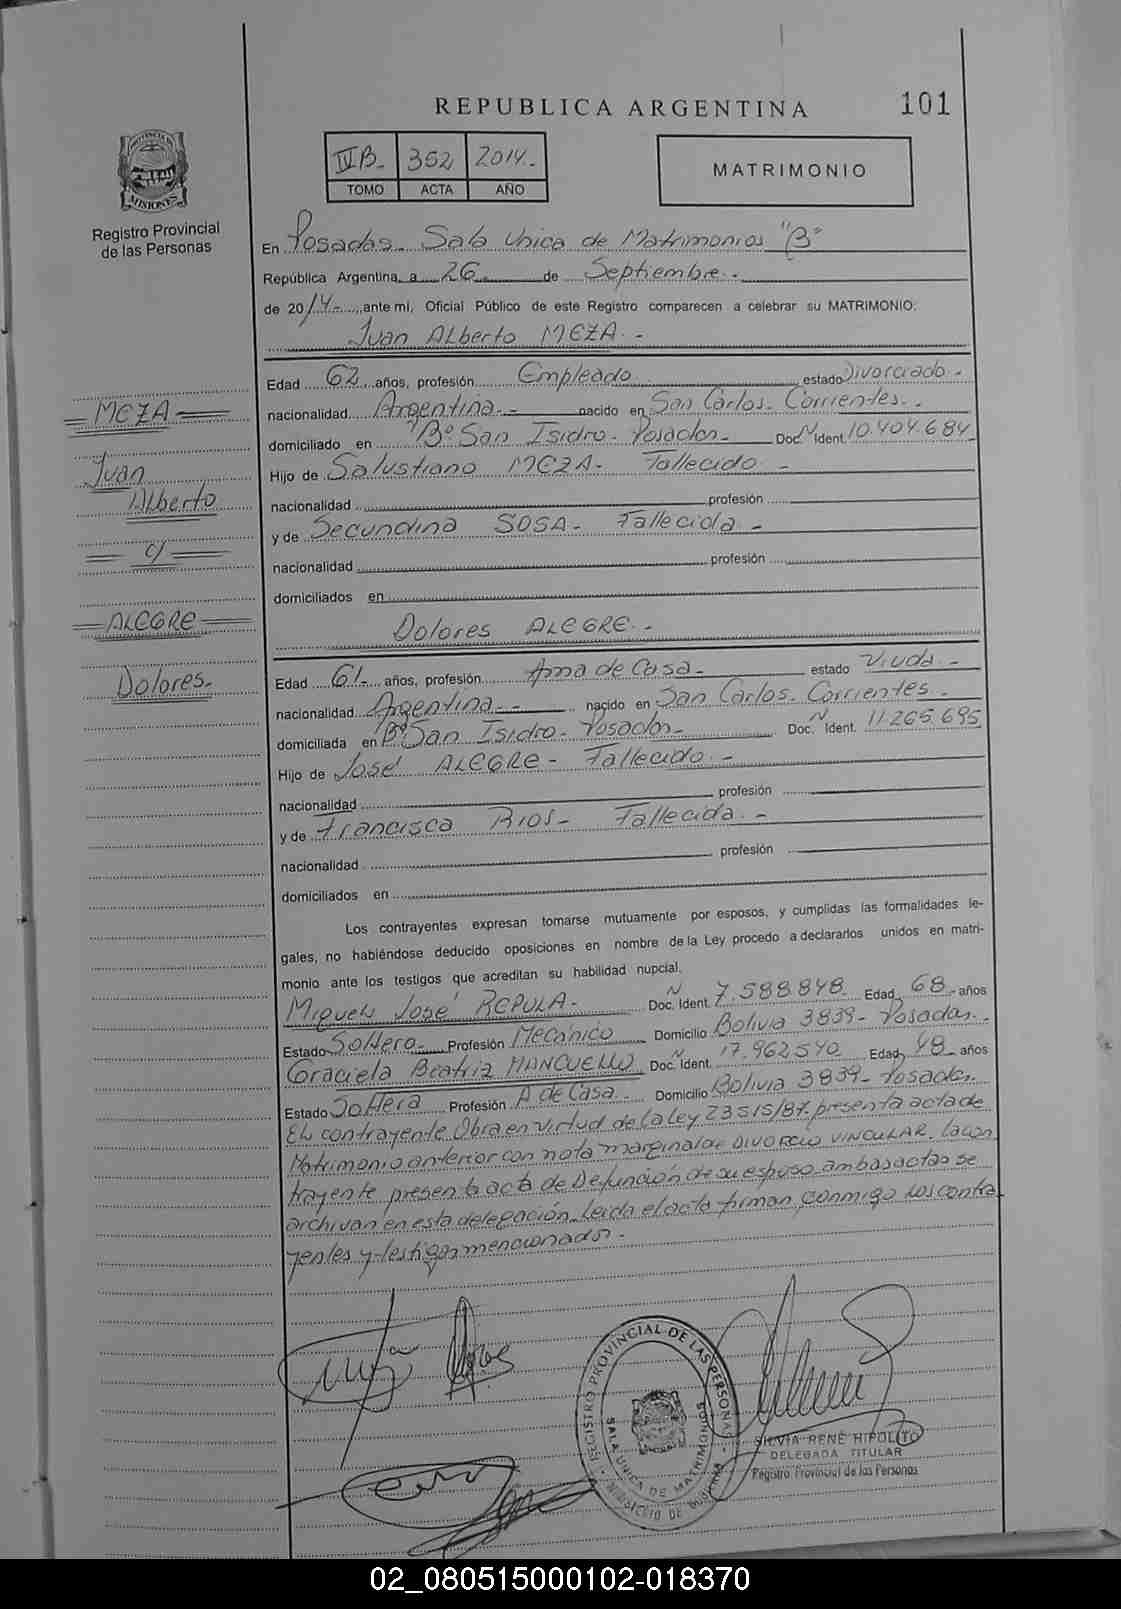 REPUBLICA ARGENTINA 101
PROVINCIA DE
MISIONES
Registro Provincial
de las Personas
IVB- 352 2014.-
TOMO ACTA AÑO
MATRIMONIO
En Posadas- Sala Unica de Matrimonios "B"
República Argentina, a 26.- de Septiembre.-
de 2014.- ante mi, Oficial Público de este Registro comparecen a celebrar su MATRIMONIO:
Juan ALberto MEZA.-
Edad 62 años, profesión Empleado estado Divorciado.-
nacionalidad Argentina.- nacido en San Carlos- Corrientes.-
domiciliado en Bº San Isidro- Posadas- Doc. N Ident. 10.404.684
Hijo de Salustiano MEZA- Fallecido.-
nacionalidad profesión
y de Secundina SOSA- Fallecida-
nacionalidad profesión
domiciliados en
MEZA
Juan
ALberto
c/
ALEGRE
Dolores-
Dolores ALEGRE.-
Edad 61- años, profesión Ama de Casa- estado Viuda-
nacionalidad Argentina.- nacido en San Carlos- Corrientes.-
domiciliada en Bº San Isidro- Posadas- Doc. N Ident. 11.265.695
Hijo de José ALEGRE- Fallecido-
nacionalidad profesión
y de Francisca RIOS- Fallecida.-
nacionalidad profesión
domiciliados en
Los contrayentes expresan tomarse mutuamente por esposos, y cumplidas las formalidades le-
gales, no habiéndose deducido oposiciones en nombre de la Ley procedo a declararlos unidos en matri-
monio ante los testigos que acreditan su habilidad nupcial.
Miguel José REPULA- Doc. N Ident. 7.588.848- Edad 68- años
Estado Soltero- Profesión Mecánico Domicilio Bolivia 3839- Posadas.-
Graciela Beatriz MANCUELLO Doc. N Ident. 17.962.540 Edad 48- años
Estado Soltera Profesión A de Casa Domicilio Bolivia 3839- Posadas-
EL contrayente Obra en virtud de la Ley 23515/87. presenta acta de
Matrimonio anterior con nota marginal de DIVORCIO VINCULAR. La con
trayente presenta acta de Defunción de su esposo, ambas actas se
archivan en esta delegación. Leida el acta firman conmigo Los contra
yentes y testigos mencionados.-
REGISTRO PROVINCIAL DE LAS PERSONAS
SALA UNICA DE MATRIMONIOS
MINISTERIO DE GOBIERNO
SILVIA RENÉ HIPOLITO
DELEGADA TITULAR
Registro Provincial de las Personas
02_080515000102-018370